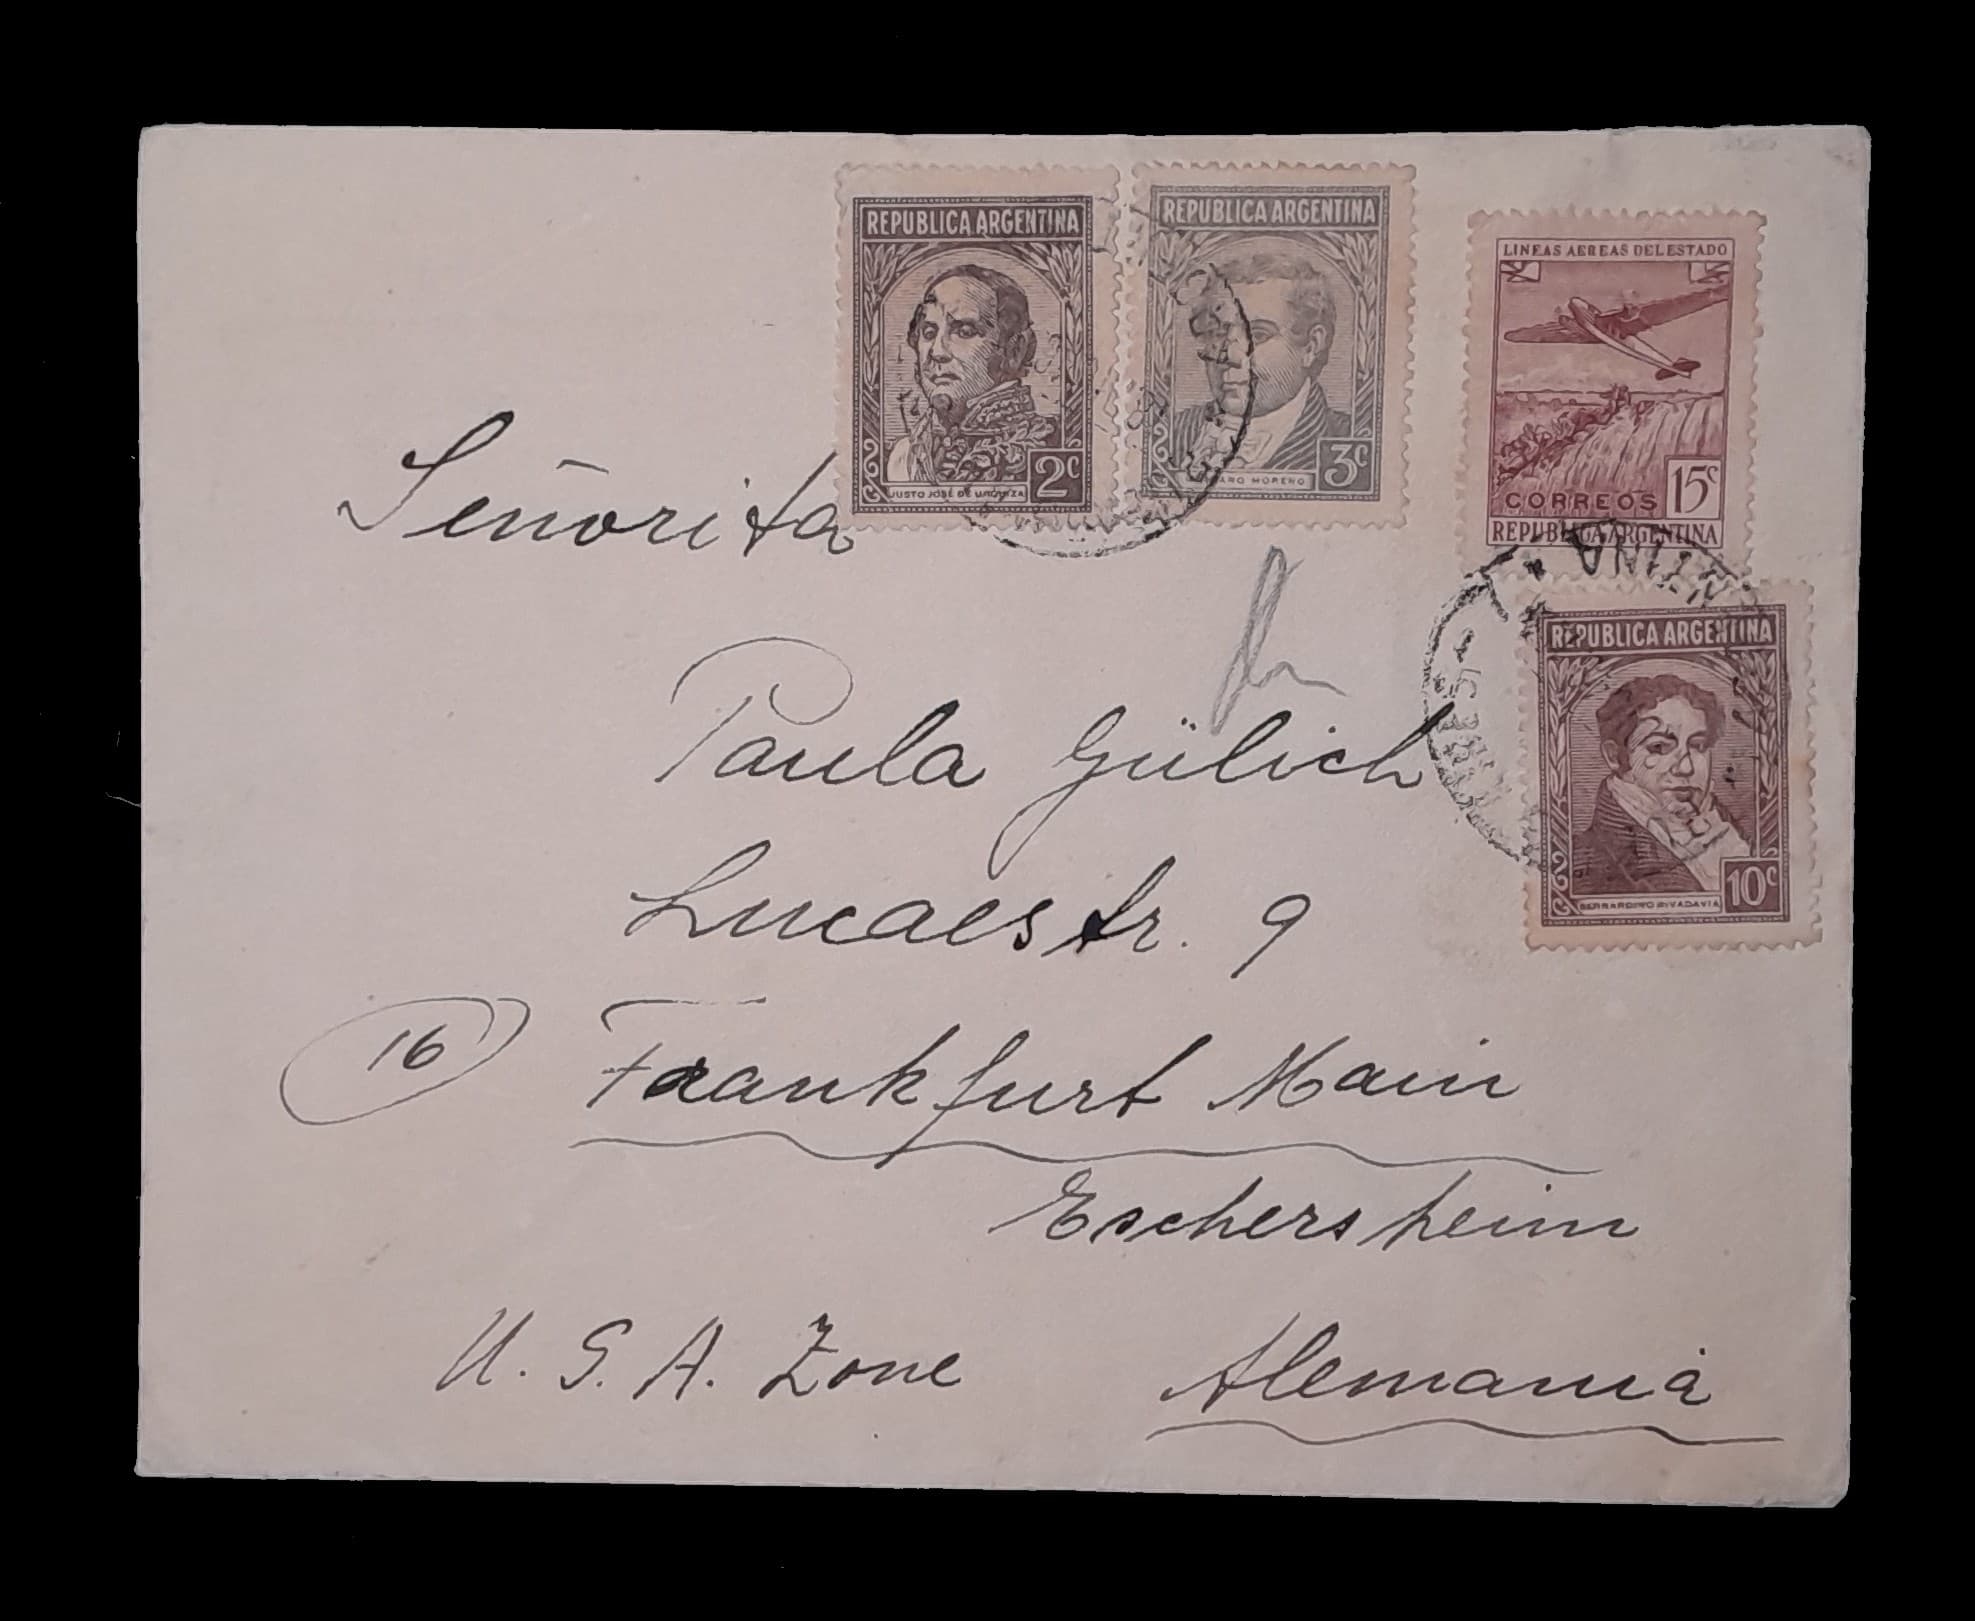 REPUBLICA ARGENTINA
JUSTO JOSÉ DE URQUIZA
2c
REPUBLICA ARGENTINA
MORENO
3c
LINEAS AEREAS DEL ESTADO
15c
CORREOS
REPUBLICA ARGENTINA
REPUBLICA ARGENTINA
BERNARDINO RIVADAVIA
10c
Señorita
Paula Gülich
Lucaestr. 9
16 Frankfurt Main
Eschersheim
U. S. A. Zone Alemania